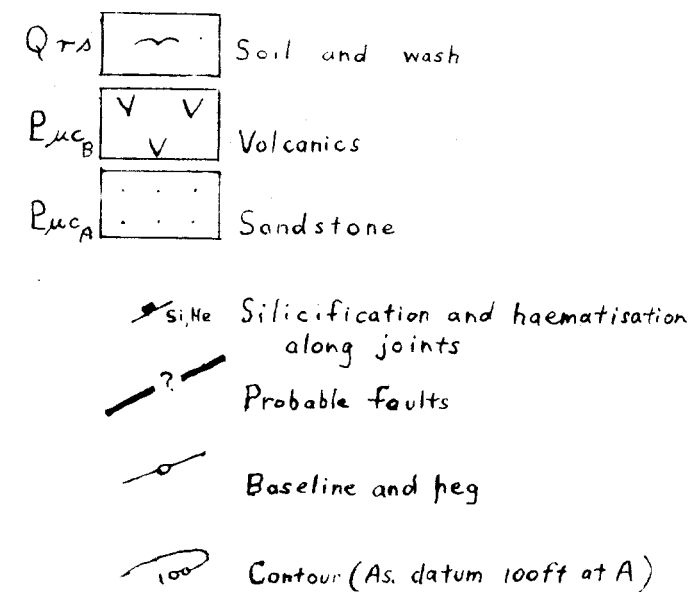 Qrs Soil and wash
PμcB Volcanics
PμcA Sandstone
Si,He Silicification and haematisation
along joints
? Probable faults
Baseline and peg
100 Contour (As. datum 100ft at A)